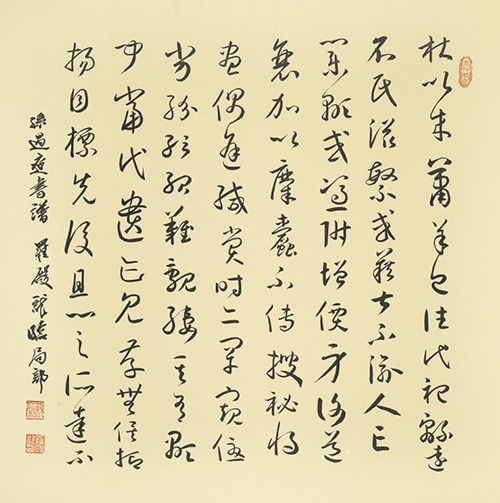 杜以来蕭羊已往代祀緜遠
名氏滋繁或藉甚不渝人亡
業顯或憑附增價身謝道
衰加以糜蠹不傳搜祕將
盡偶逢緘賞時亦罕窺優
劣紛紜殆難覼縷其有顯
聞當代遺迹見存無俟抑
揚自標先後且心之所達不
孫過庭書譜 羅殿臨局部